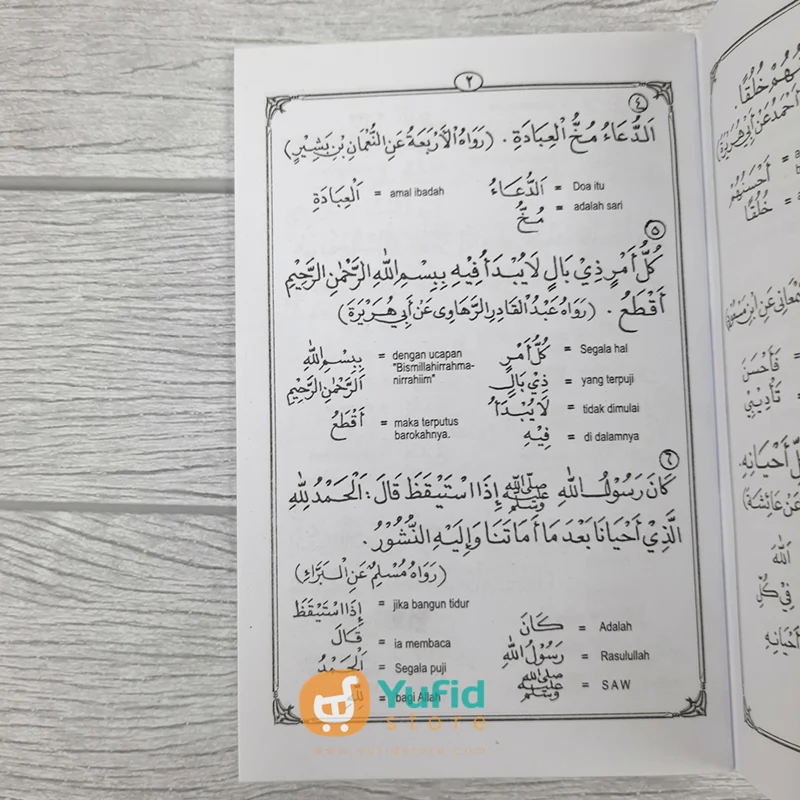 ٢
٤
اَلدُّعَاءُ مُخُّ الْعِبَادَةِ . (رَوَاهُ الْأَرْبَعَةُ عَنِ النُّعْمَانِ بْنِ بَشِيْرٍ)
اَلدُّعَاءُ = Doa itu
مُخُّ = adalah sari
اَلْعِبَادَةِ = amal ibadah
٥
كُلُّ أَمْرٍ ذِيْ بَالٍ لَا يُبْدَأُ فِيْهِ بِبِسْمِ اللهِ الرَّحْمٰنِ الرَّحِيْمِ
أَقْطَعُ . (رَوَاهُ عَبْدُ الْقَادِرِ الرَّهَاوِى عَنْ أَبِيْ هُرَيْرَةَ)
كُلُّ أَمْرٍ = Segala hal
ذِيْ بَالٍ = yang terpuji
لَا يُبْدَأُ = tidak dimulai
فِيْهِ = di dalamnya
بِبِسْمِ اللهِ = dengan ucapan
"Bismillahirrahma-
الرَّحْمٰنِ الرَّحِيْمِ nirrahiim"
أَقْطَعُ = maka terputus
barokahnya.
٦
كَانَ رَسُوْلُ اللهِ صَلَّى اللهُ عَلَيْهِ وَسَلَّمَ إِذَا اسْتَيْقَظَ قَالَ : اَلْحَمْدُ لِلّٰهِ
الَّذِيْ أَحْيَانَا بَعْدَ مَا أَمَاتَنَا وَإِلَيْهِ النُّشُوْرُ .
(رَوَاهُ مُسْلِمٌ عَنِ الْبَرَّاءِ)
كَانَ = Adalah
رَسُوْلُ اللهِ = Rasulullah
صَلَّى اللهُ عَلَيْهِ وَسَلَّمَ = SAW
إِذَا اسْتَيْقَظَ = jika bangun tidur
قَالَ = ia membaca
اَلْحَمْدُ = Segala puji
لِلّٰهِ = bagi Allah
Yufid
store
www.yufidstore.com
خُلُقًا.
أَحْسَنُهُمْ =
خُلُقًا =
فَأَحْسَنَ
تَأْدِيْبِيْ
أَحْيَانِهِ.
عَنْ عَائِشَةَ)
اللهَ
فِيْ كُلِّ
أَحْيَانِهِ